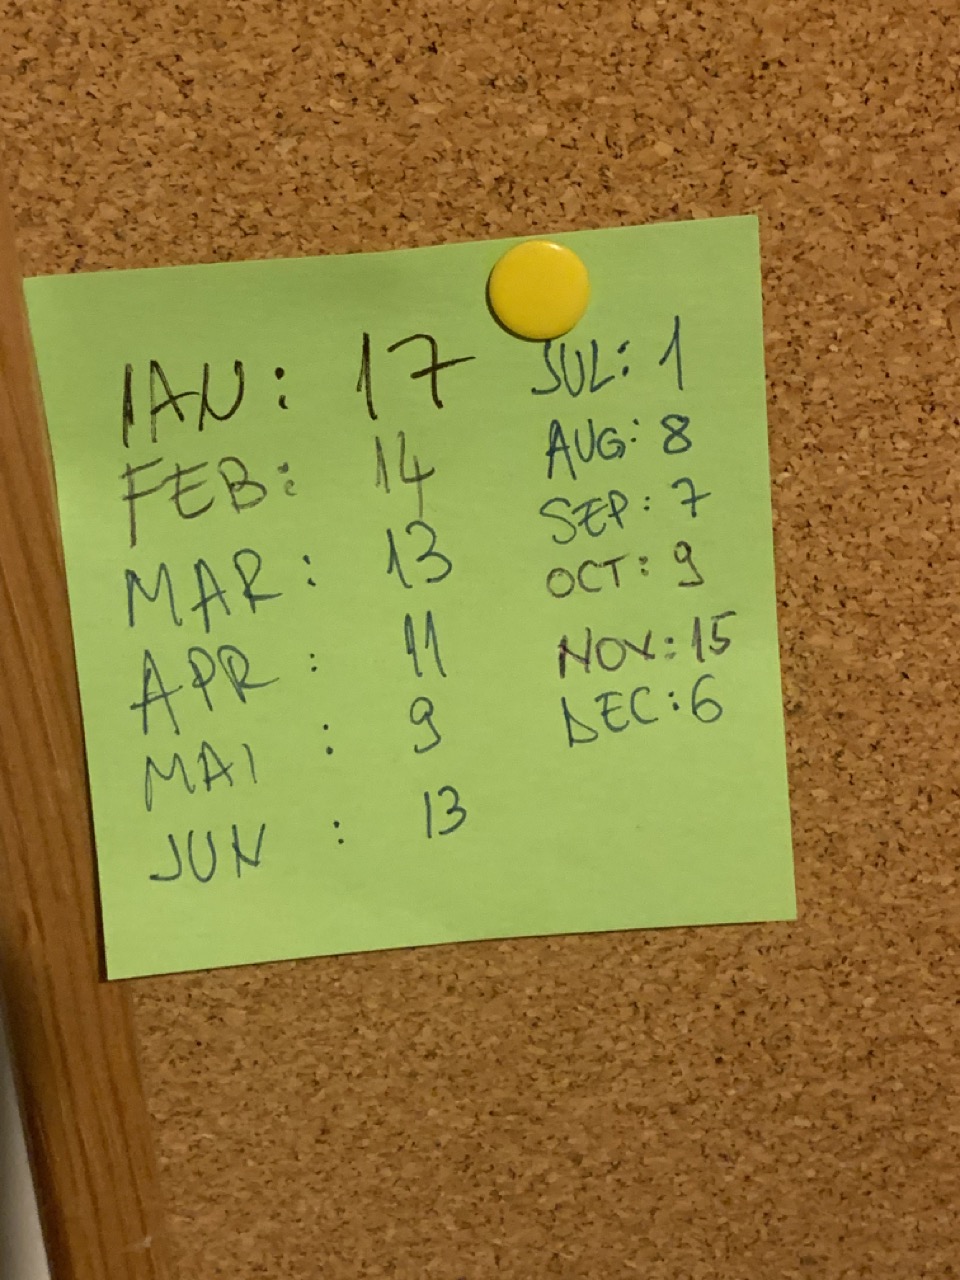 IAN: 17
FEB: 14
MAR: 13
APR: 11
MAI: 9
JUN: 13
JUL: 1
AUG: 8
SEP: 7
OCT: 9
NOV: 15
DEC: 6